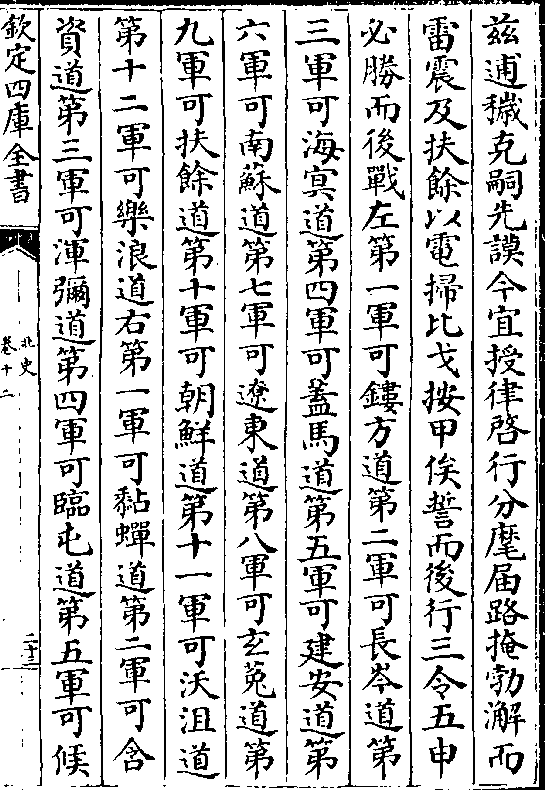 兹逋穢克嗣先謨今宜授律啓行分麾届路掩勃澥而
雷震及扶餘以電掃比戈按甲俟誓而後行三令五申
必勝而後戰左第一軍可鏤方道第二軍可長岑道第
三軍可海㝠道第四軍可蓋馬道第五軍可建安道第
六軍可南蘇道第七軍可遼東道第八軍可玄菟道第
九軍可扶餘道第十軍可朝鮮道第十一軍可沃沮道
第十二軍可樂浪道右第一軍可黏蟬道第二軍可含
資道第三軍可渾彌道第四軍可臨屯道第五軍可候
欽定四庫全書
北史
卷十二
二十三